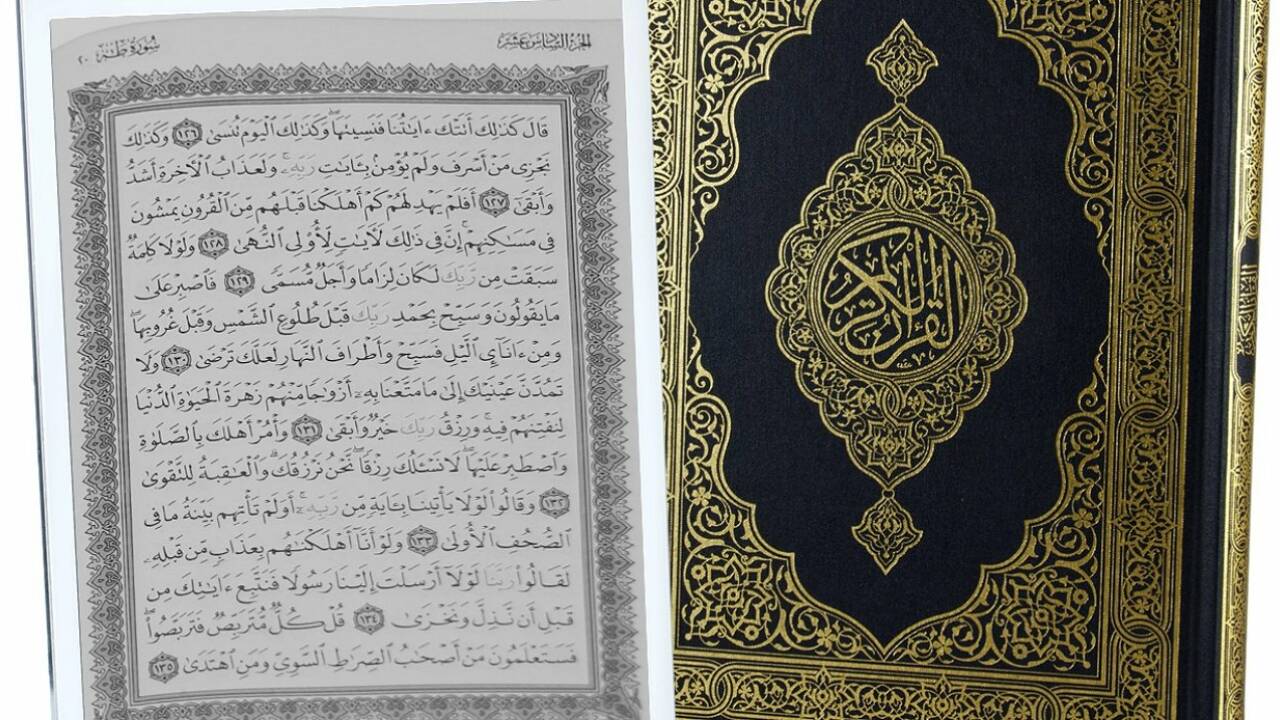 سُورَةُ طه ٢٠
الجزء السادس عشر
قَالَ كَذَٰلِكَ أَتَتْكَ ءَايَٰتُنَا فَنَسِيتَهَا ۖ وَكَذَٰلِكَ ٱلْيَوْمَ تُنسَىٰ ١٢٦ وَكَذَٰلِكَ
نَجْزِى مَنْ أَسْرَفَ وَلَمْ يُؤْمِنۢ بِـَٔايَٰتِ رَبِّهِۦ ۚ وَلَعَذَابُ ٱلْأَخِرَةِ أَشَدُّ
وَأَبْقَىٰٓ ١٢٧ أَفَلَمْ يَهْدِ لَهُمْ كَمْ أَهْلَكْنَا قَبْلَهُم مِّنَ ٱلْقُرُونِ يَمْشُونَ
فِى مَسَٰكِنِهِمْ ۗ إِنَّ فِى ذَٰلِكَ لَأَيَٰتٍ لِّأُو۟لِى ٱلنُّهَىٰ ١٢٨ وَلَوْلَا كَلِمَةٌ
سَبَقَتْ مِن رَّبِّكَ لَكَانَ لِزَامًا وَأَجَلٌ مُّسَمًّى ١٢٩ فَٱصْبِرْ عَلَىٰ
مَا يَقُولُونَ وَسَبِّحْ بِحَمْدِ رَبِّكَ قَبْلَ طُلُوعِ ٱلشَّمْسِ وَقَبْلَ غُرُوبِهَا ۖ
وَمِنْ ءَانَآئِ ٱلَّيْلِ فَسَبِّحْ وَأَطْرَافَ ٱلنَّهَارِ لَعَلَّكَ تَرْضَىٰ ١٣٠ وَلَا
تَمُدَّنَّ عَيْنَيْكَ إِلَىٰ مَا مَتَّعْنَا بِهِۦٓ أَزْوَٰجًا مِّنْهُمْ زَهْرَةَ ٱلْحَيَوٰةِ ٱلدُّنْيَا
لِنَفْتِنَهُمْ فِيهِ ۚ وَرِزْقُ رَبِّكَ خَيْرٌ وَأَبْقَىٰ ١٣١ وَأْمُرْ أَهْلَكَ بِٱلصَّلَوٰةِ
وَٱصْطَبِرْ عَلَيْهَا ۖ لَا نَسْـَٔلُكَ رِزْقًا ۖ نَّحْنُ نَرْزُقُكَ ۗ وَٱلْعَٰقِبَةُ لِلتَّقْوَىٰ
١٣٢ وَقَالُوا۟ لَوْلَا يَأْتِينَا بِـَٔايَةٍ مِّن رَّبِّهِۦٓ ۚ أَوَلَمْ تَأْتِهِم بَيِّنَةُ مَا فِى
ٱلصُّحُفِ ٱلْأُولَىٰ ١٣٣ وَلَوْ أَنَّآ أَهْلَكْنَٰهُم بِعَذَابٍ مِّن قَبْلِهِۦ
لَقَالُوا۟ رَبَّنَا لَوْلَآ أَرْسَلْتَ إِلَيْنَا رَسُولًا فَنَتَّبِعَ ءَايَٰتِكَ مِن
قَبْلِ أَن نَّذِلَّ وَنَخْزَىٰ ١٣٤ قُلْ كُلٌّ مُّتَرَبِّصٌ فَتَرَبَّصُوا۟ ۖ
فَسَتَعْلَمُونَ مَنْ أَصْحَٰبُ ٱلصِّرَٰطِ ٱلسَّوِىِّ وَمَنِ ٱهْتَدَىٰ ١٣٥
القرآن الكريم